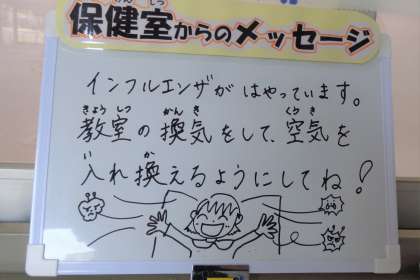 保健室からのメッセージ
インフルエンザがはやっています。
教室の換気をして、空気を
入れ換えるようにしてね！